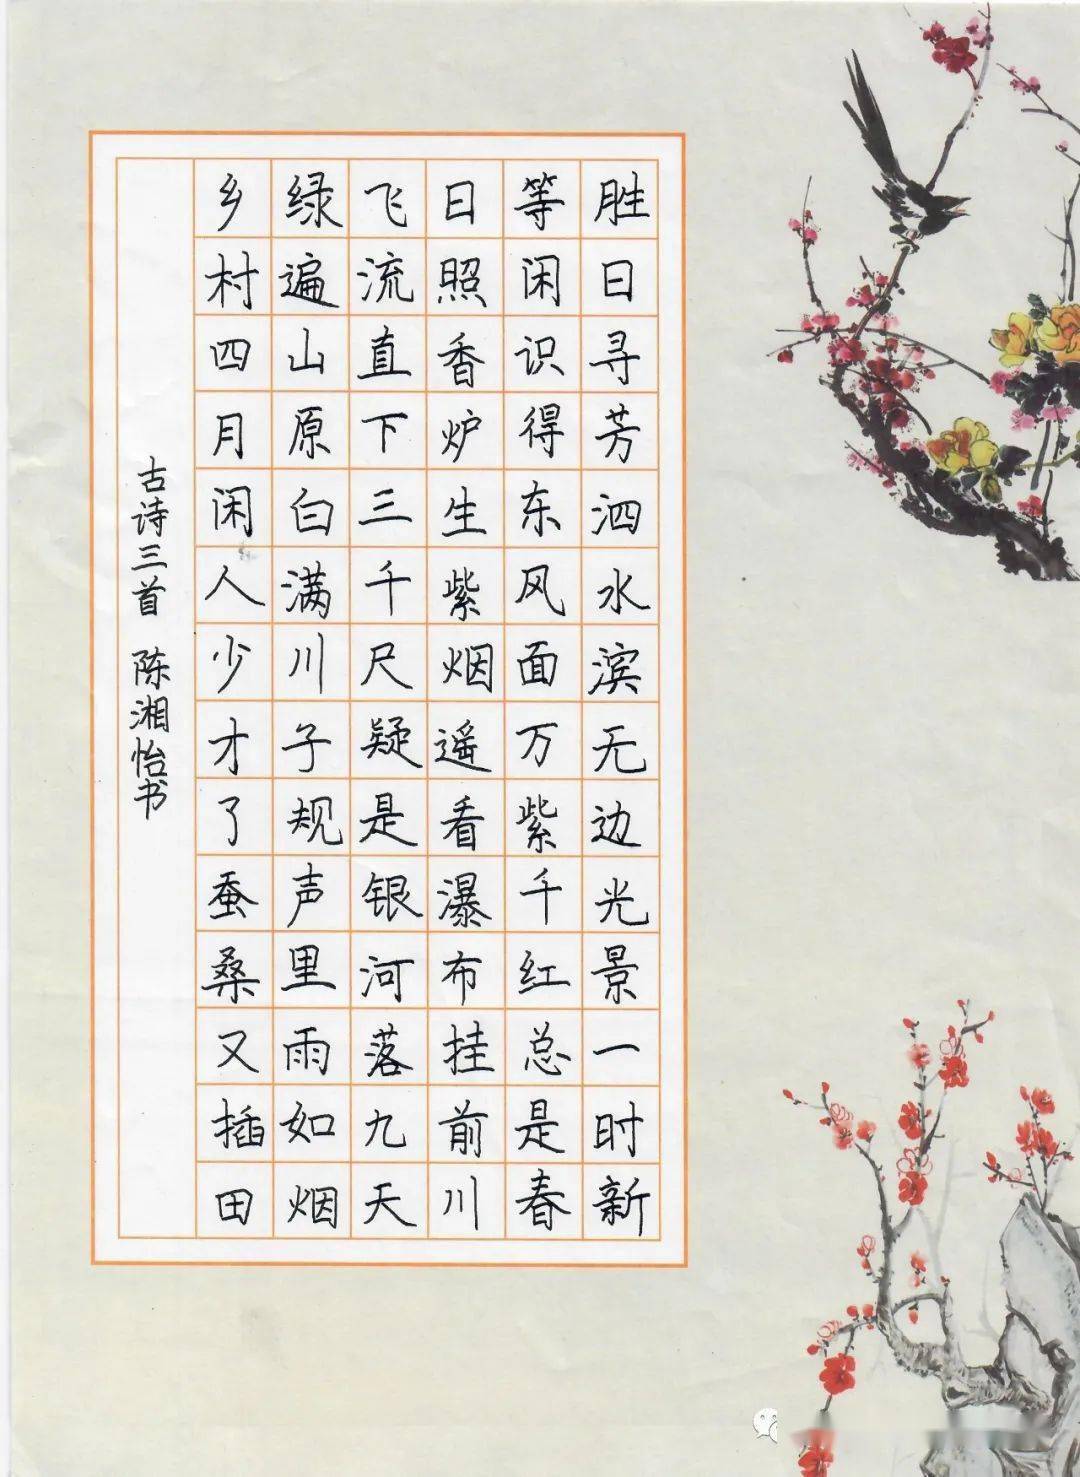 胜日寻芳泗水滨无边光景一时新
等闲识得东风面万紫千红总是春
日照香炉生紫烟遥看瀑布挂前川
飞流直下三千尺疑是银河落九天
绿遍山原白满川子规声里雨如烟
乡村四月闲人少才了蚕桑又插田
古诗三首 陈湘怡书